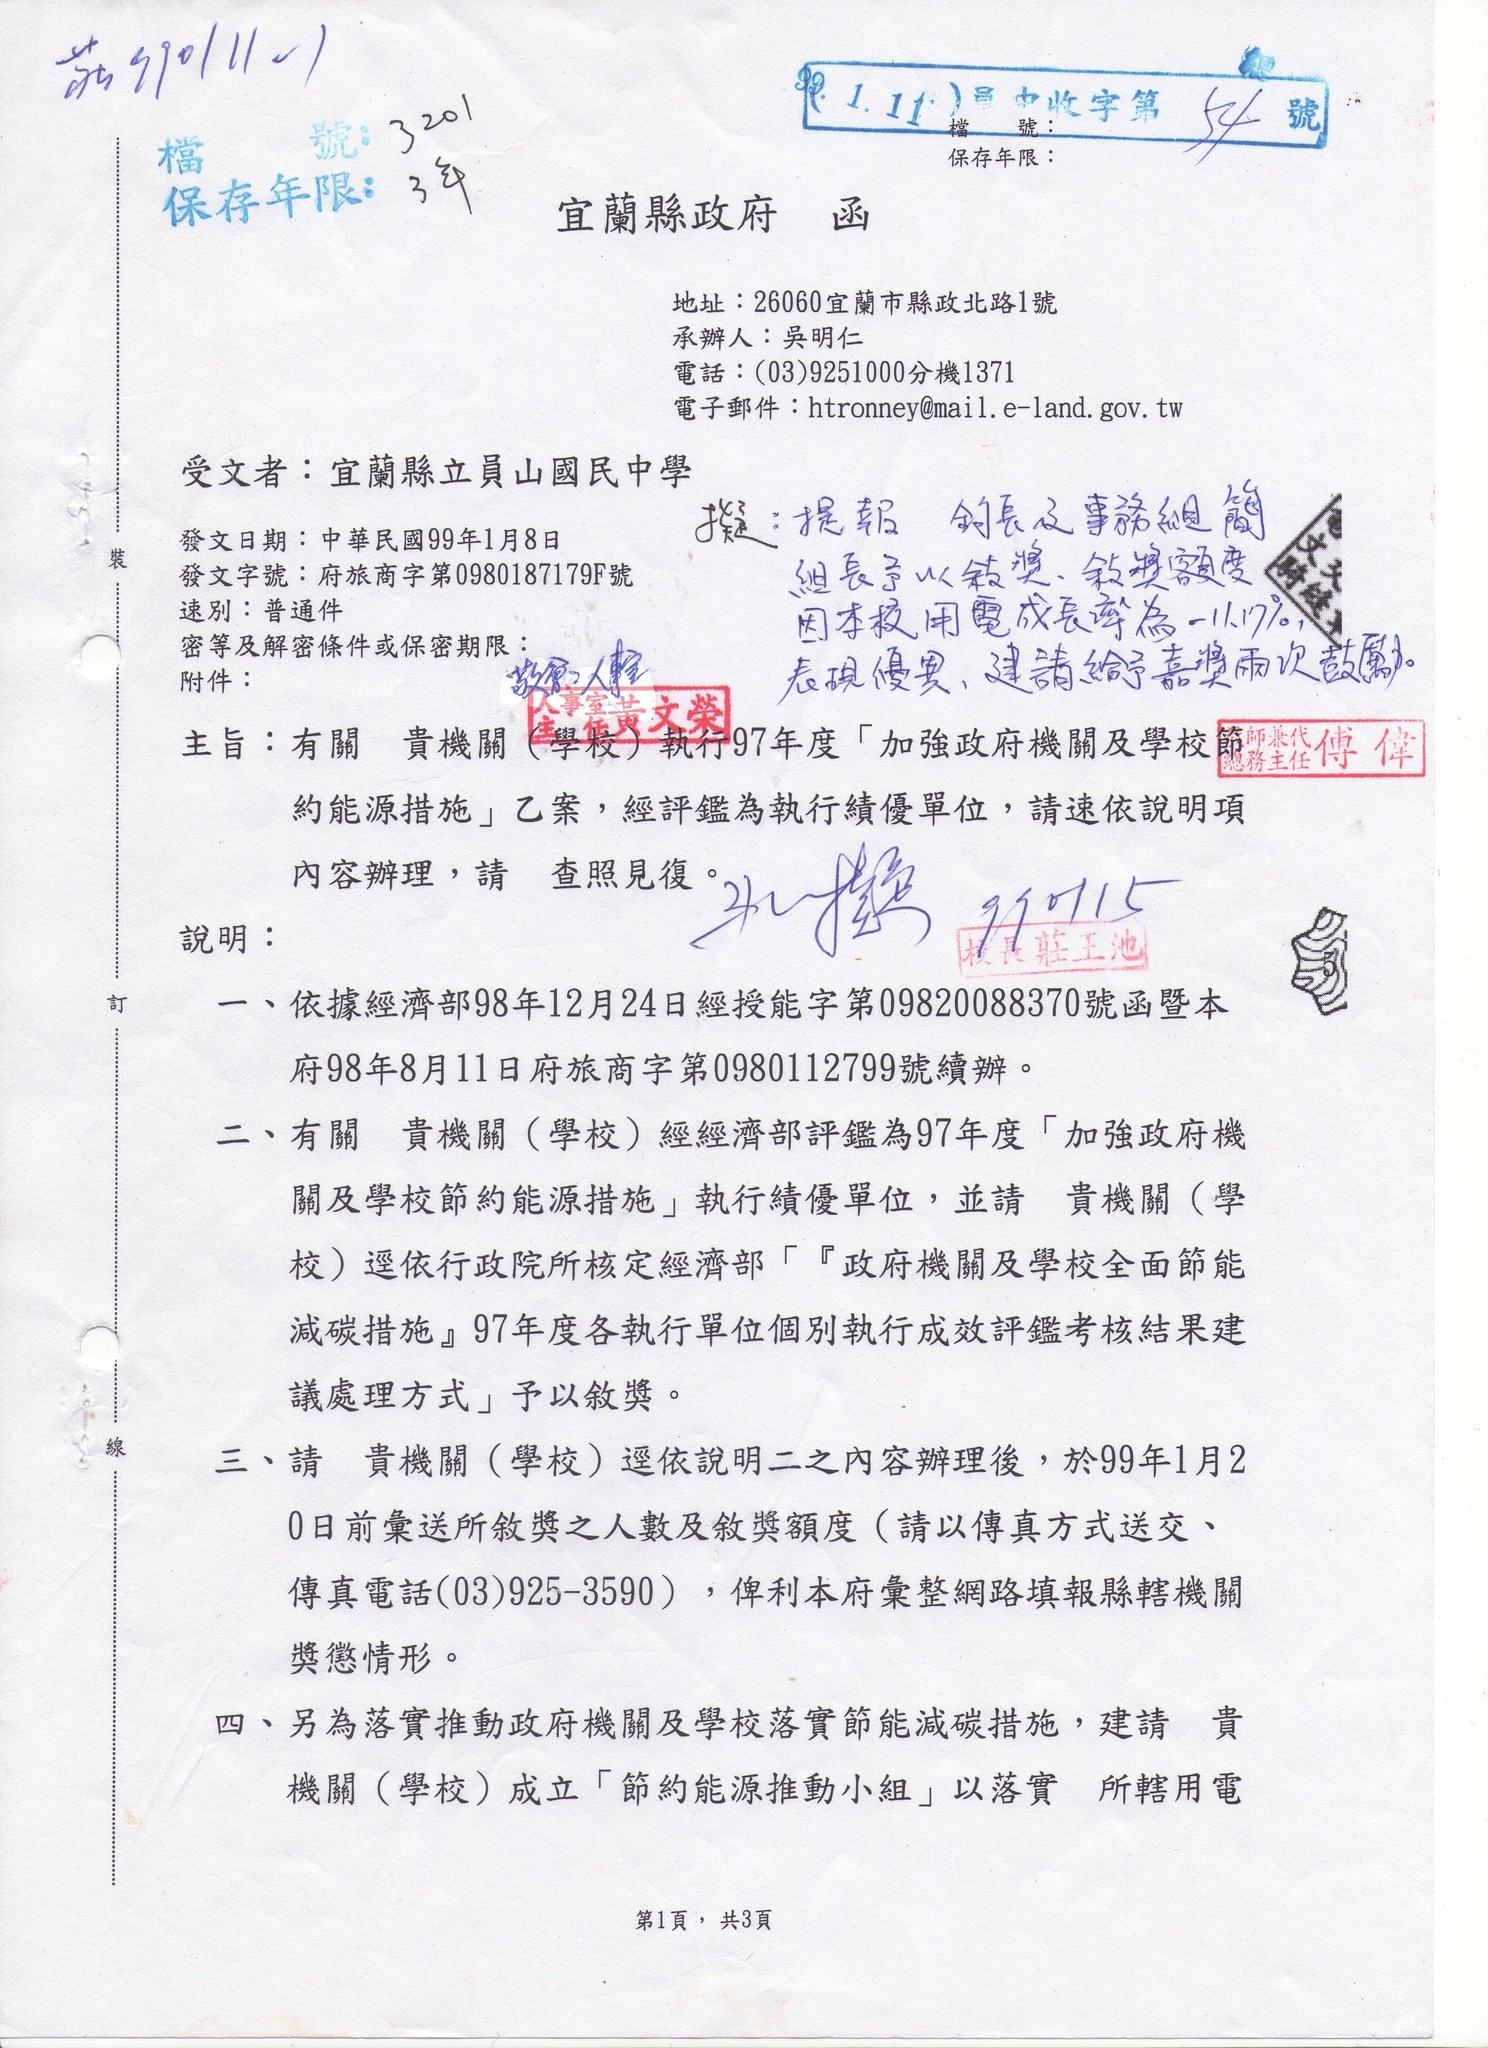 莊990111
99.1.11)員中收字第54號
檔 號：3201
保存年限：3年
檔 號：
保存年限：
宜蘭縣政府 函
地址：26060宜蘭市縣政北路1號
承辦人：吳明仁
電話：(03)9251000分機1371
電子郵件：htronney@mail.e-land.gov.tw
受文者：宜蘭縣立員山國民中學
發文日期：中華民國99年1月8日
發文字號：府旅商字第0980187179F號
速別：普通件
密等及解密條件或保密期限：
附件：
擬：提報 鈞長及事務組簡
組長予以敘獎、敘獎額度
因本校用電成長率為-11.17%，
表現優異、建請給予嘉獎兩次鼓勵。
敬會：人事室
人事室主任黃文榮
主旨：有關 貴機關（學校）執行97年度「加強政府機關及學校節
約能源措施」乙案，經評鑑為執行績優單位，請速依說明項
內容辦理，請 查照見復。
師兼代總務主任傅偉
990115
校長莊王池
說明：
一、依據經濟部98年12月24日經授能字第09820088370號函暨本
府98年8月11日府旅商字第0980112799號續辦。
二、有關 貴機關（學校）經經濟部評鑑為97年度「加強政府機
關及學校節約能源措施」執行績優單位，並請 貴機關（學
校）逕依行政院所核定經濟部「『政府機關及學校全面節能
減碳措施』97年度各執行單位個別執行成效評鑑考核結果建
議處理方式」予以敘獎。
三、請 貴機關（學校）逕依說明二之內容辦理後，於99年1月2
0日前彙送所敘獎之人數及敘獎額度（請以傳真方式送交、
傳真電話(03)925-3590），俾利本府彙整網路填報縣轄機關
獎懲情形。
四、另為落實推動政府機關及學校落實節能減碳措施，建請 貴
機關（學校）成立「節約能源推動小組」以落實 所轄用電
裝
訂
線
第1頁，共3頁